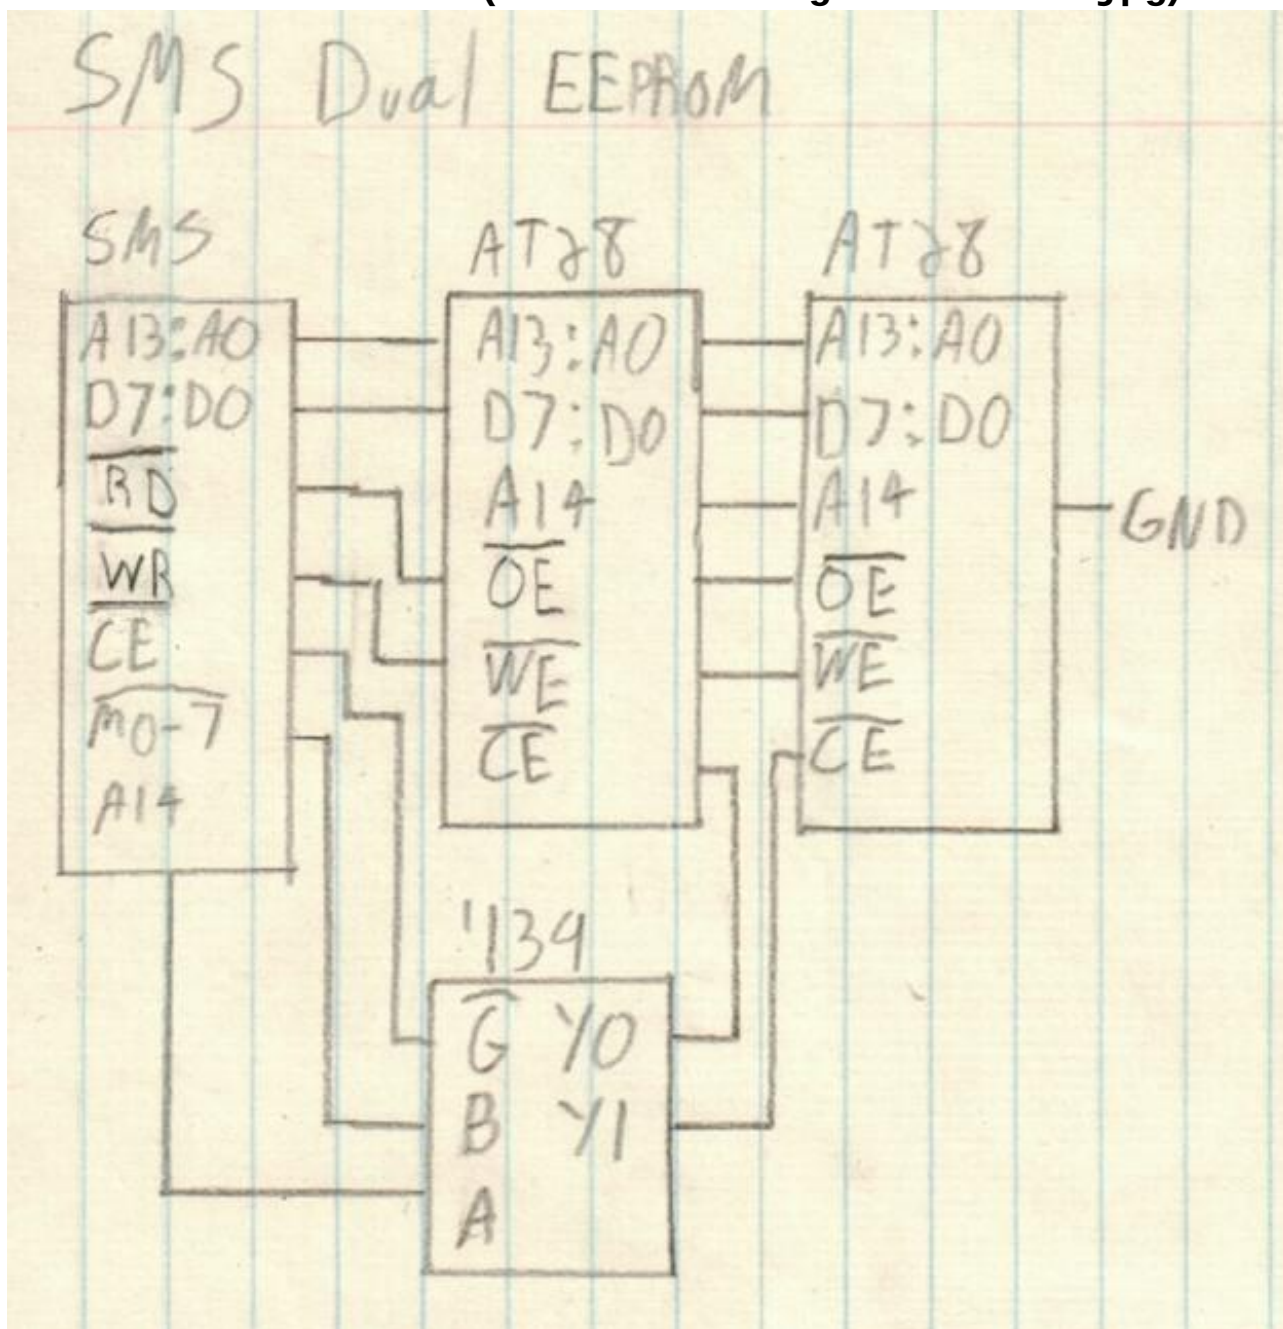 SMS Dual EEPROM
SMS
A13:A0
D7:D0
RD
WR
CE
M0-7
A14
AT28
A13:A0
D7:D0
A14
OE
WE
CE
AT28
A13:A0
D7:D0
A14
OE
WE
CE
GND
'139
G Y0
B Y1
A